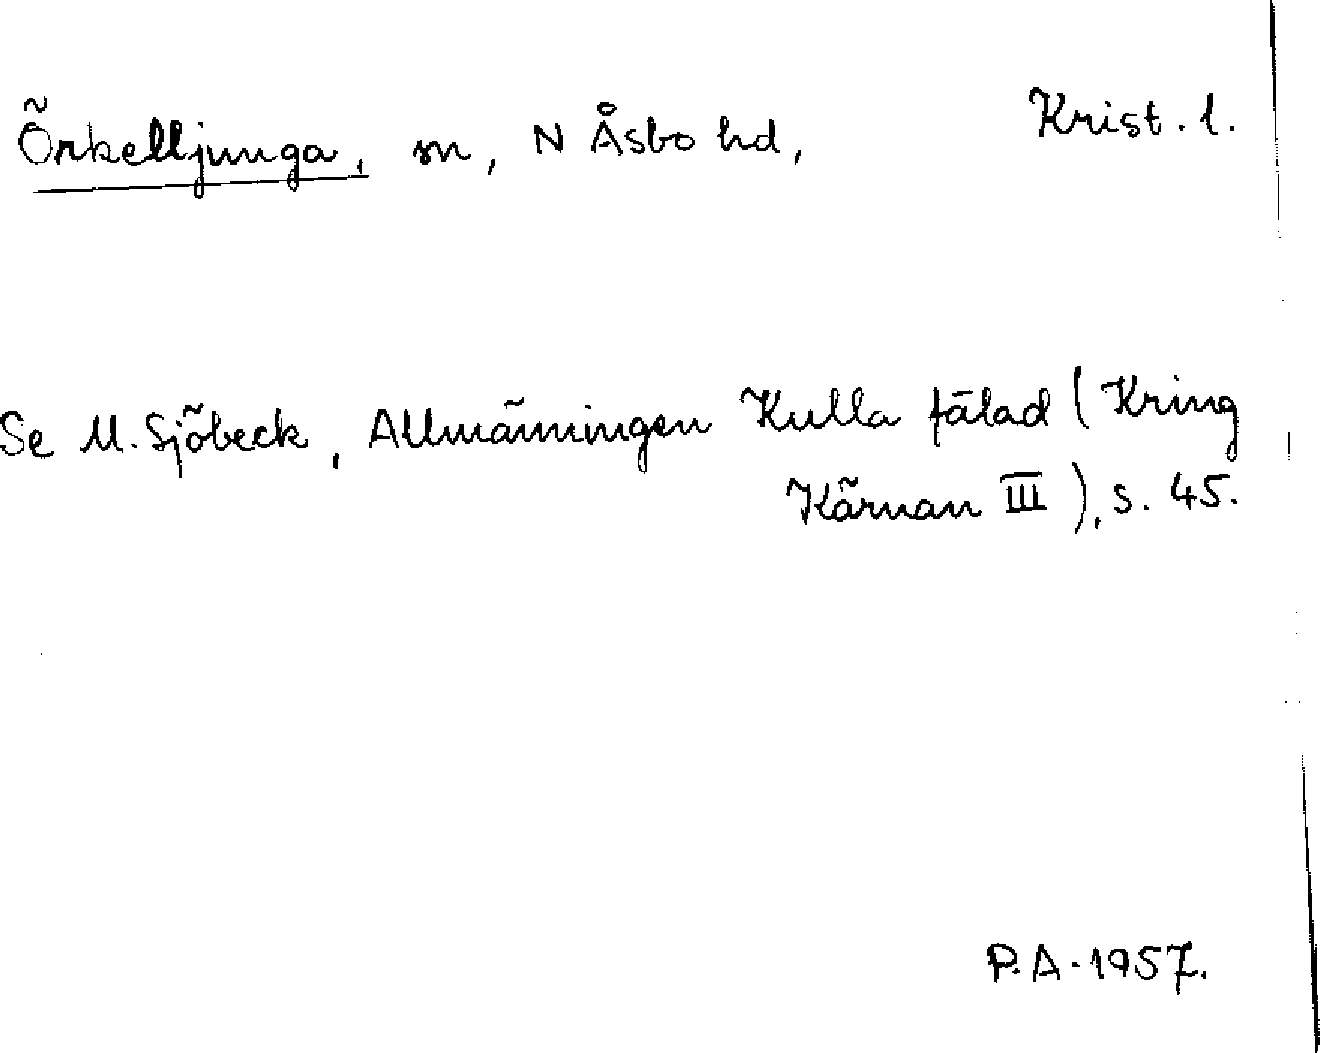 Örkelljunga, sn, N Åsbo hd, Krist. l.
Se M. Sjöbeck, Allmänningen Kulla fälad (Kring
Kärnan III), s. 45.
P. A. 1957.